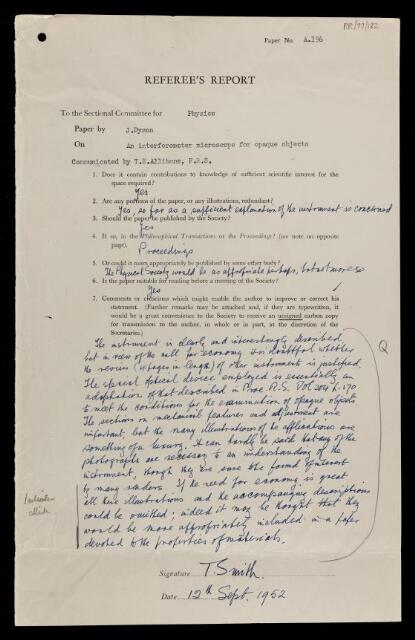 RR/77/122
Paper No. A.156
REFEREE'S REPORT
To the Sectional Committee for Physics
Paper by J.Dyson
On An interferometer microscope for opaque objects
Communicated by T.E.Allibone, F.R.S.
1. Does it contain contributions to knowledge of sufficient scientific interest for the
space required?
Yes
2. Are any portions of the paper, or any illustrations, redundant?
Yes, so far as a sufficient explanation of the instrument is concerned
3. Should the paper be published by the Society?
Yes
4. If so, in the Philosophical Transactions or the Proceedings? (see note on opposite
page).
Proceedings
5. Or could it more appropriately be published by some other body?
The Physical Society would be as appropriate perhaps, but not more so
6. Is the paper suitable for reading before a meeting of the Society?
Yes
7. Comments or criticisms which might enable the author to improve or correct his
statement. (Further remarks may be attached and, if they are typewritten, it
would be a great convenience to the Society to receive an unsigned carbon copy
for transmission to the author, in whole or in part, at the discretion of the
Secretaries.)
The instrument is clearly and interestingly described
but in view of the call for economy it is doubtful whether
the review (of pages in length) of other instruments is justified.
The special optical device employed is essentially an
adaptation of that described in Proc. R.S. Vol 204 p. 170
to meet the conditions for the examination of opaque objects.
The sections on mechanical features and adjustment are
important, but the many illustrations of the applications are
something of a luxury. It can hardly be said that any of the
photographs are necessary to an understanding of the
instrument, though they are sure to be found of interest
by many readers. If the need for economy is great
all these illustrations and the accompanying descriptions
could be omitted; indeed it may be thought that they
would be more appropriately included in a paper
devoted to the properties of materials.
Q
Signature T. Smith.
Date 12th Sept. 1952